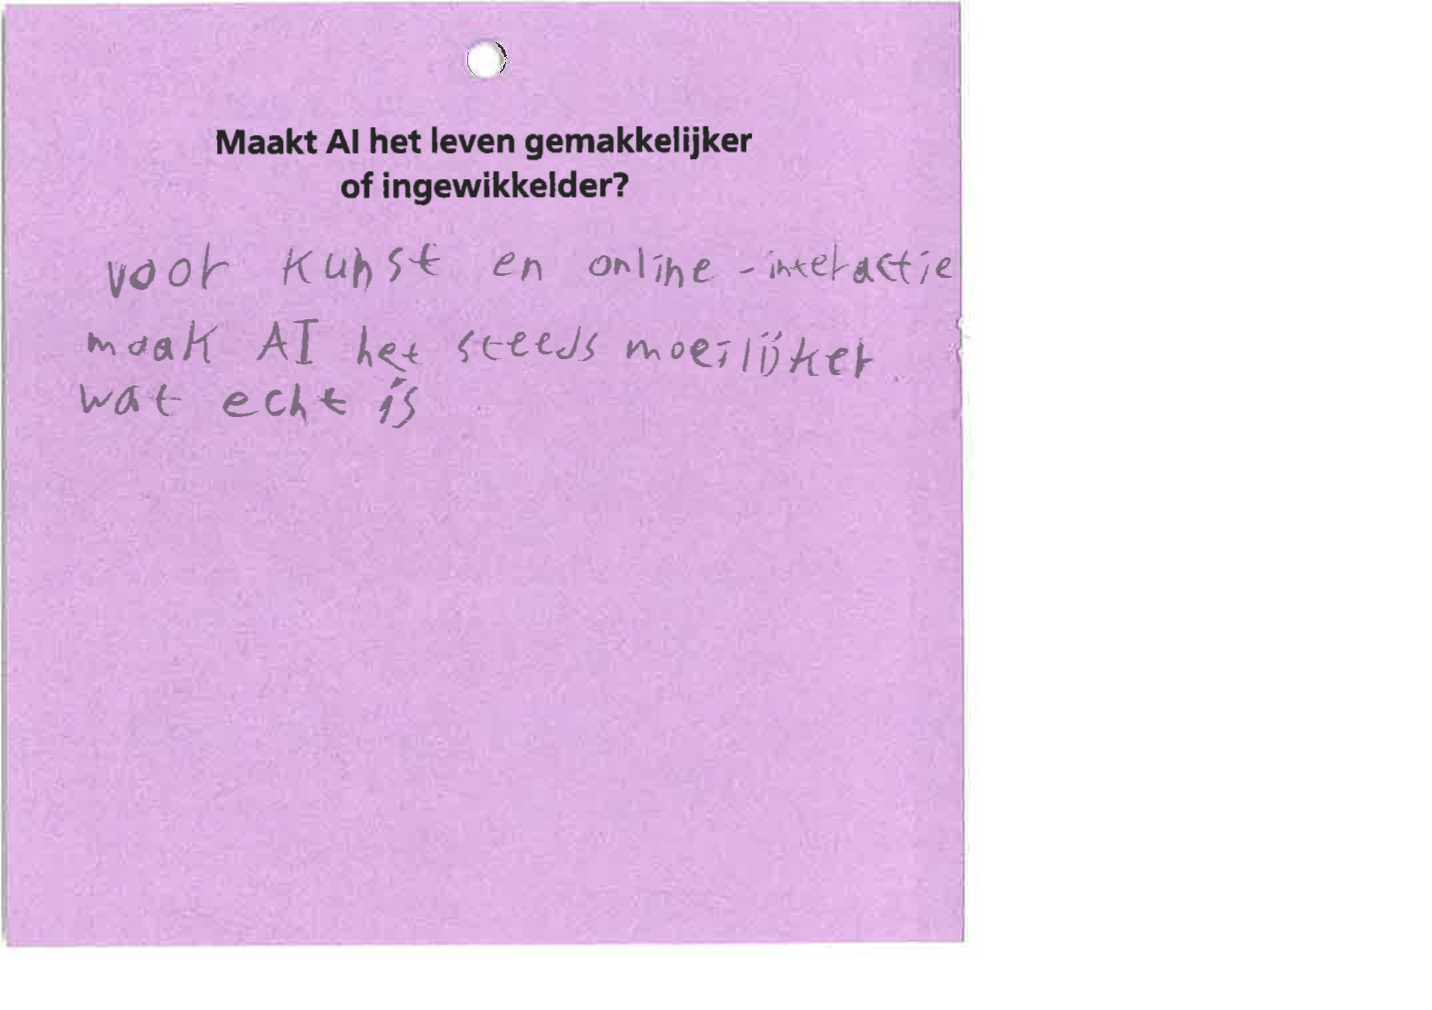 Maakt AI het leven gemakkelijker
of ingewikkelder?
voor kunst en online-interactie
maak AI het steeds moeilijker
wat echt is